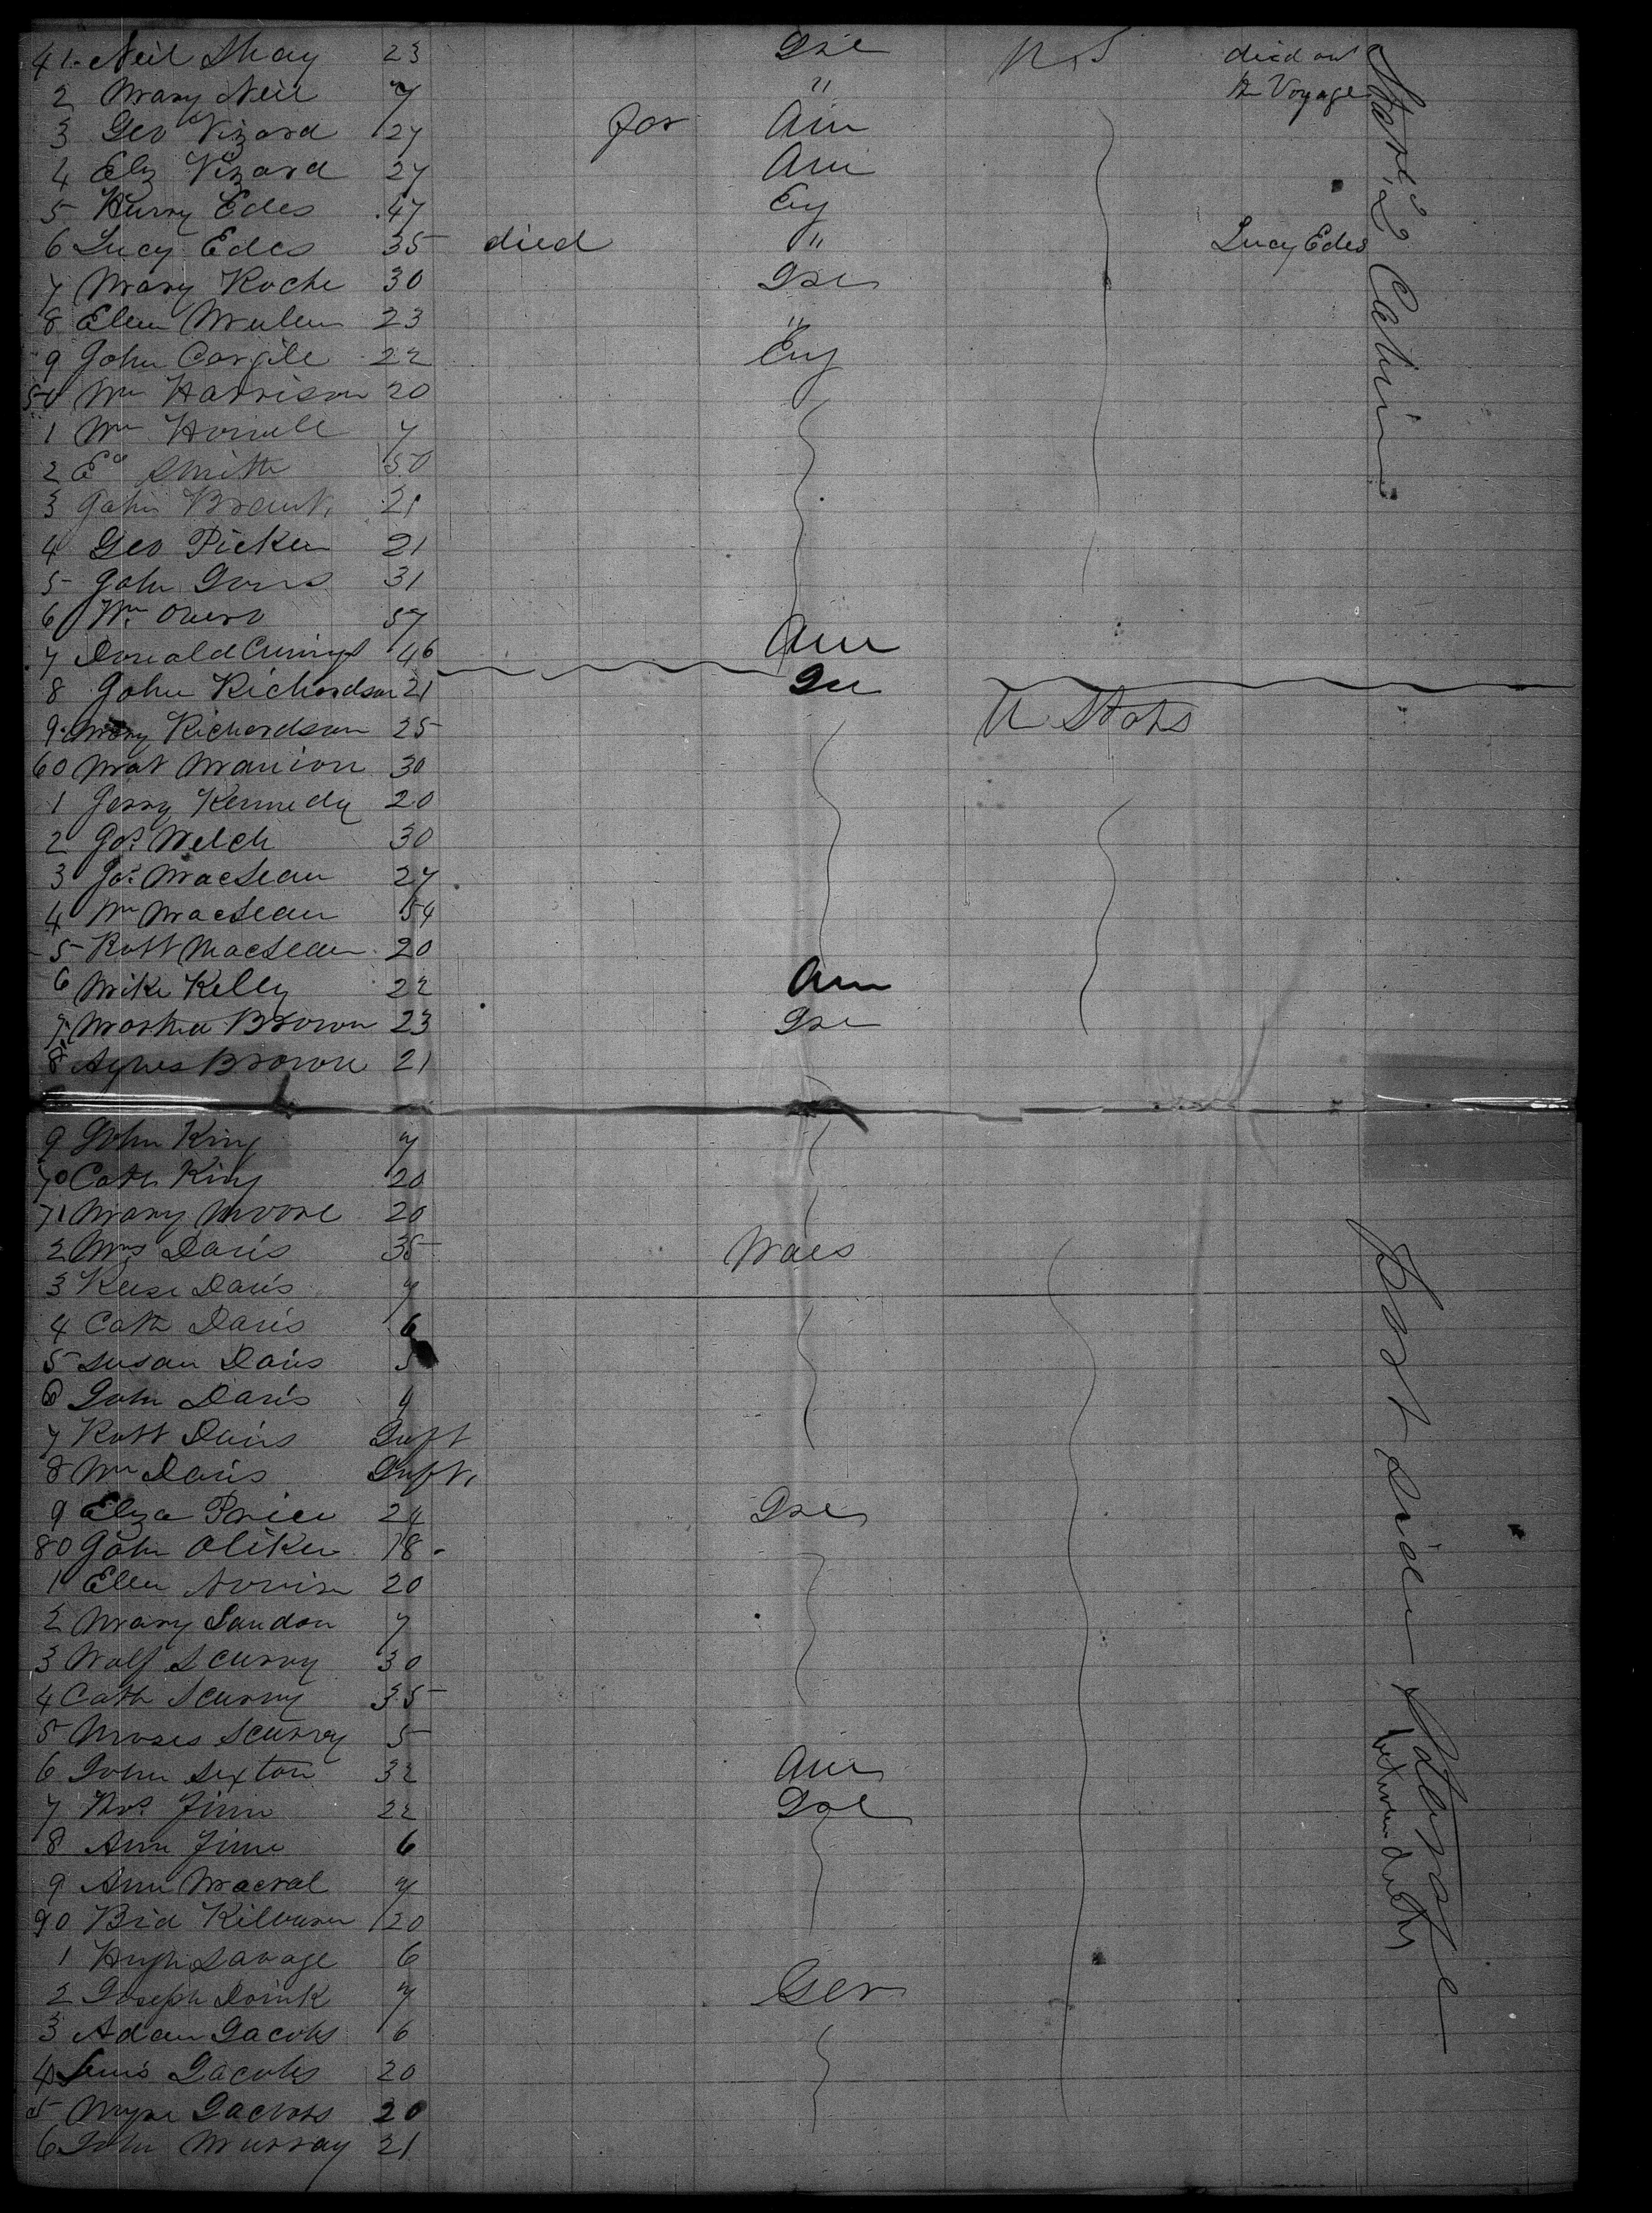 41 Neil Shay 23 Ire U.S died on
2 Mary Neil 7 " the Voyage
3 Geo Vizard 27 for Am
4 Elz Vizard 27 Am
5 Henry Edes 47 Eng
6 Lucy Edes 35 died " Lucy Edes
7 Mary Roche 30 Ire
8 Ellen Mullen 23 "
9 John Cargile 22 Eng
50 Wm Harrison 20
1 Wm 7
2 Ed Smith 50
3 John Brant 21
4 Geo Picken 21
5 John 31
6 Wm Owens 57
7 Donald 46 Am
8 John Richardson 21 Ire
9 Mary Richardson 25 U States
60 Mat Manion 30
1 Jerry Kennedy 20
2 Jos Welch 30
3 Jos MacLean 27
4 Wm MacLean 54
5 Robt MacLean 20
6 Mike Kelly 22 Am
7 Martha Brown 23 Ire
8 Agnes Brown 21
9 John King 7
70 Cath King 20
71 Mary Moore 20
2 Mrs Davis 35 Wales
3 Davis 7
4 Cath Davis 6
5 Susan Davis 5
6 John Davis 4
7 Robt Davis Inft
8 Wm Davis Inft
9 Eliza Price 24 Ire
80 John 18
1 Ellen 20
2 Mary Landon 7
3 Scurry 30
4 Cath Scurry 35
5 Moses Scurry 5
6 John Sexton 32 Am
7 Thos Finn 22 Ire
8 Ann Finn 6
9 Ann 7
90 Bid 20
1 Hugh Savage 6
2 Joseph 7 Ger
3 Adam Jacobs 6
4 Jacobs 20
5 Jacobs 20
6 John Murray 21
Cabin
between decks